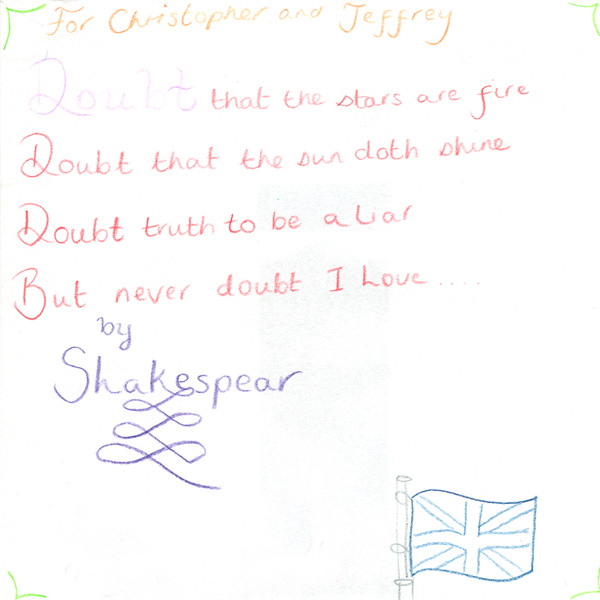 For Christopher and Jeffrey
Doubt that the stars are fire
Doubt that the sun doth shine
Doubt truth to be a Liar
But never doubt I Love.....
by
Shakespear